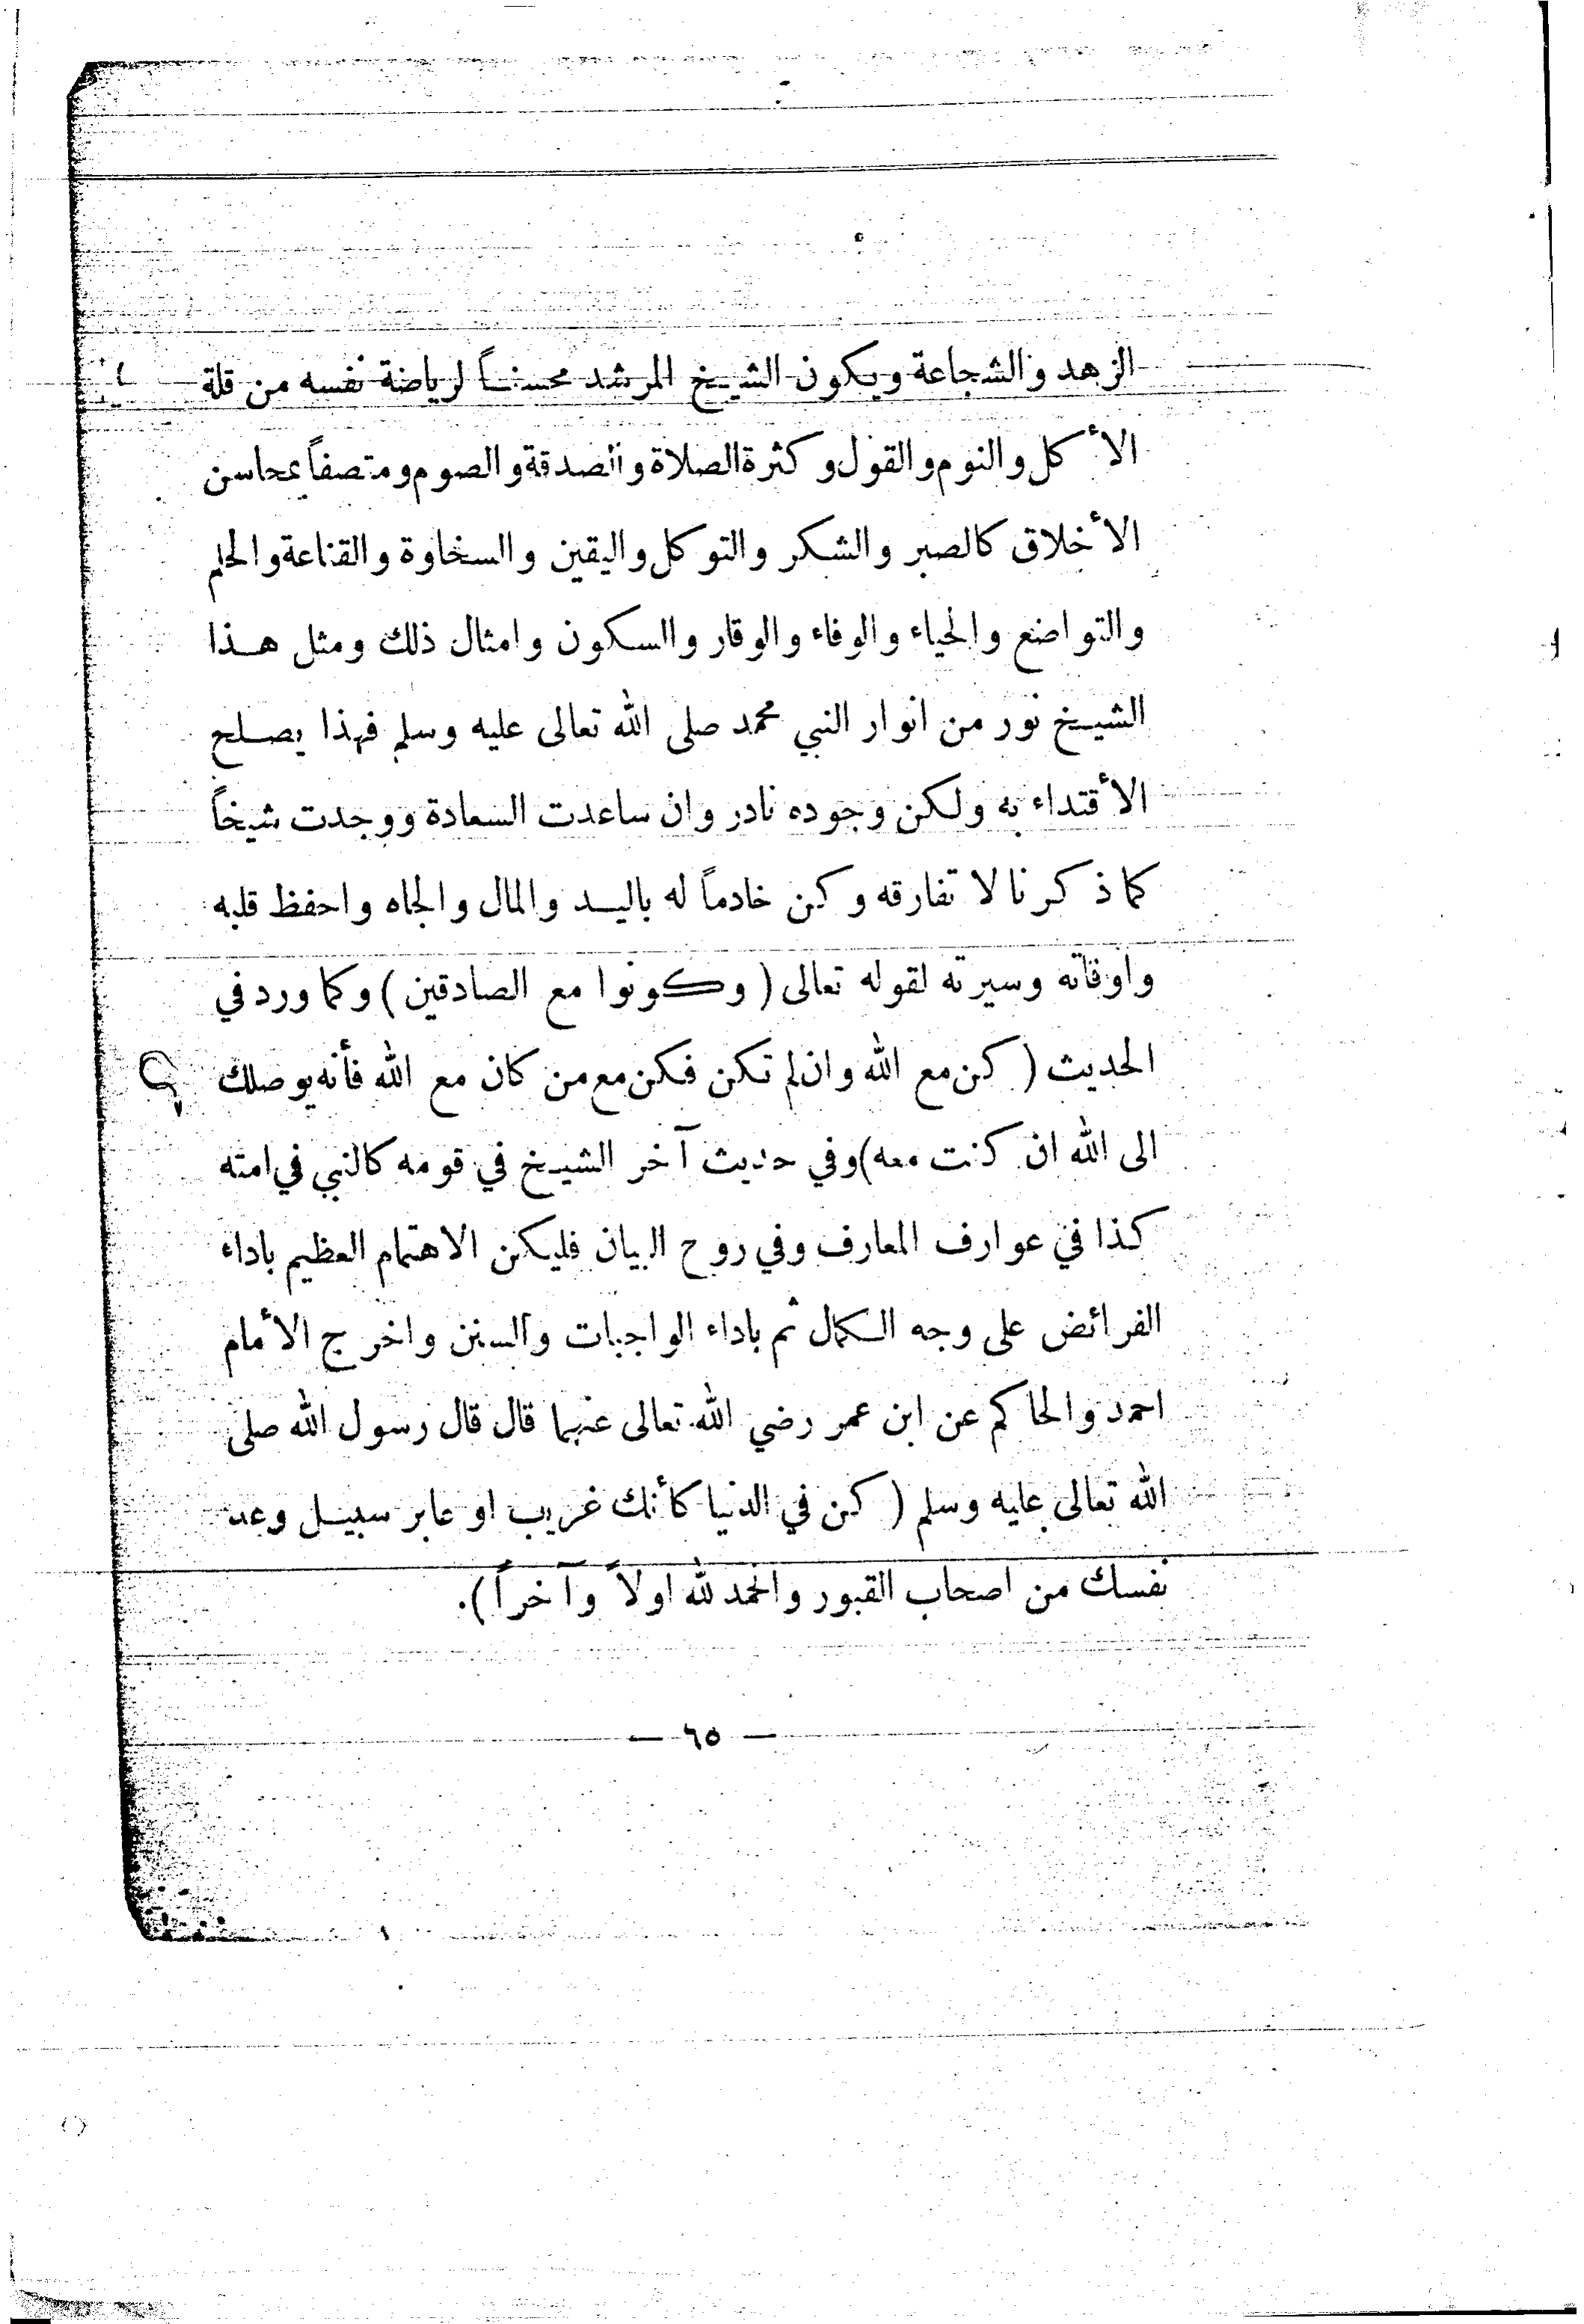 الزهد والشجاعة ويكون الشيخ المرشد محسناً لرياضة نفسه من قلة
الأكل والنوم والقول وكثرة الصلاة والصدقة والصوم ومتصفاً بمحاسن
الأخلاق كالصبر والشكر والتوكل واليقين والسخاوة والقناعة والحلم
والتواضع والحياء والوفاء والوقار والسكون وامثال ذلك ومثل هذا
الشيخ نور من انوار النبي محمد صلى الله تعالى عليه وسلم فهذا يصلح
الأقتداء به ولكن وجوده نادر وان ساعدت السعادة ووجدت شيخاً
كما ذكرنا لا تفارقه وكن خادماً له باليد والمال والجاه واحفظ قلبه
واوقاته وسيرته لقوله تعالى ( وكونوا مع الصادقين ) وكما ورد في
الحديث ( كن مع الله وان لم تكن فكن مع من كان مع الله فأنه يوصلك
الى الله ان كنت معه) وفي حديث آخر الشيخ في قومه كالنبي في امته
كذا في عوارف المعارف وفي روح البيان فليكن الاهتمام العظيم باداء
الفرائض على وجه الكمال ثم باداء الواجبات والسنن واخرج الأمام
احمد والحاكم عن ابن عمر رضي الله تعالى عنهما قال قال رسول الله صلى
الله تعالى عليه وسلم ( كن في الدنيا كأنك غريب او عابر سبيل وعد
نفسك من اصحاب القبور والحمد لله اولاً وآخراً ).
— ٦٥ —